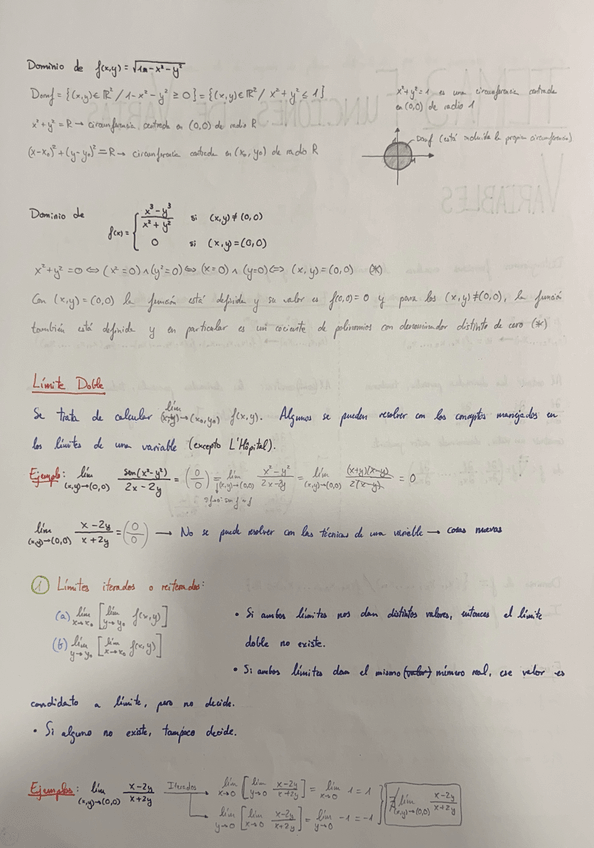 Dominio de f(x,y) = √(1-x²-y²)
Domf = {(x,y) ∈ ℝ² / 1-x²-y² ≥ 0} = {(x,y) ∈ ℝ² / x²+y² ≤ 1}
x²+y²=1 es una circunferencia centrada
en (0,0) de radio 1
x²+y² = R → circunferencia centrada en (0,0) de radio R
Domf (está incluida la propia circunferencia)
(x-x₀)²+(y-y₀)² = R → circunferencia centrada en (x₀,y₀) de radio R
Dominio de
f(x) = { (x³-y³)/(x²+y²) si (x,y)≠(0,0)
0 si (x,y)=(0,0)
x²+y²=0 ⇔ (x²=0)∧(y²=0) ⇔ (x=0)∧(y=0) ⇔ (x,y)=(0,0) (*)
Con (x,y)=(0,0) la función está definida y su valor es f(0,0)=0 y para los (x,y)≠(0,0), la función
también está definida y en particular es un cociente de polinomios con denominador distinto de cero (*)
Límite Doble
Se trata de calcular lím (x,y)→(x₀,y₀) f(x,y). Algunos se pueden resolver con los conceptos manejados en
los límites de una variable (excepto L'Hôpital).
Ejemplo: lím (x,y)→(0,0) sen(x²-y²)/(2x-2y) = (0/0) = lím (x,y)→(0,0) (x²-y²)/(2x-2y) = lím (x,y)→(0,0) (x+y)(x-y)/2(x-y) = 0
lím (x,y)→(0,0) (x-2y)/(x+2y) = (0/0) → No se puede resolver con las técnicas de una variable → cosas nuevas
① Límites iterados o reiterados:
(a) lím x→x₀ [lím y→y₀ f(x,y)]
(b) lím y→y₀ [lím x→x₀ f(x,y)]
• Si ambos límites nos dan distintos valores, entonces el límite
doble no existe.
• Si ambos límites dan el mismo (valor) número real, ese valor es
candidato a límite, pero no decide.
• Si alguno no existe, tampoco decide.
Ejemplos: lím (x,y)→(0,0) (x-2y)/(x+2y) Iterados → lím x→0 [lím y→0 (x-2y)/(x+2y)] = lím x→0 1 = 1
→ lím y→0 [lím x→0 (x-2y)/(x+2y)] = lím y→0 -1 = -1
∄ lím (x,y)→(0,0) (x-2y)/(x+2y)